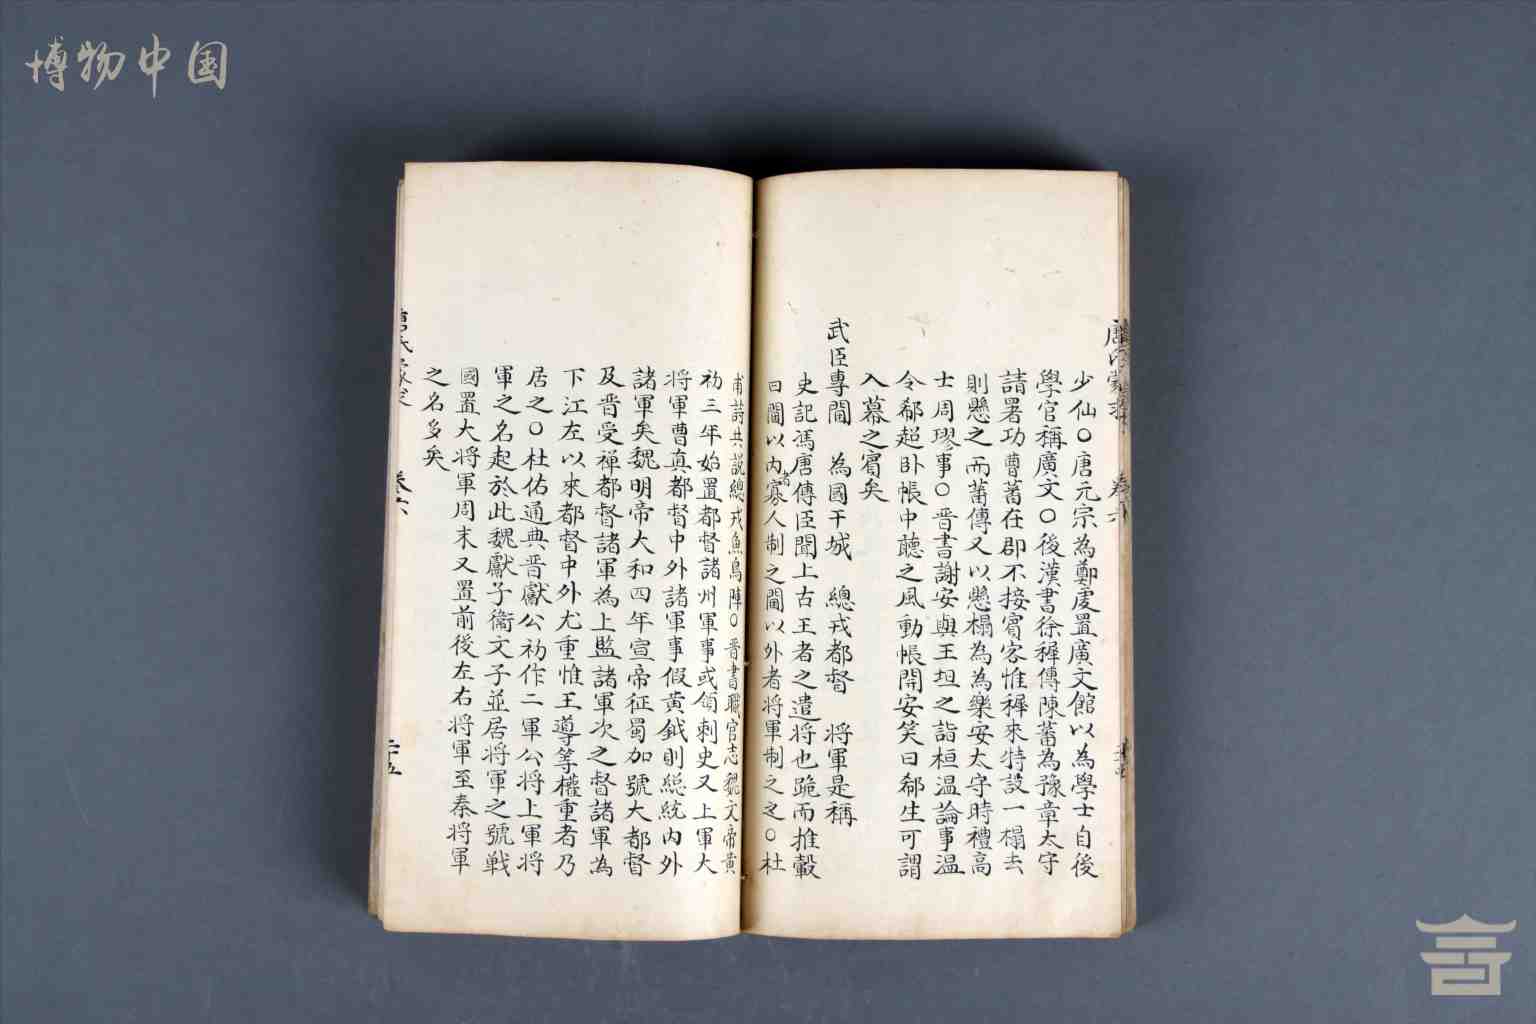 博物中国
少仙〇唐元宗為鄭虔置廣文館以為學士自後
學官稱廣文〇後漢書徐穉傳陳蕃為豫章太守
請署功曹蕃在郡不接賓客惟穉來特設一榻去
則懸之而蕃傳又以懸榻為為樂安太守時禮高
士周璆事〇晋書謝安與王坦之詣桓温論事温
令郗超卧帳中聽之風動帳開安笑曰郗生可謂
入幕之賓矣
武臣專閫 為國干城 總戎都督 將軍是稱
史記馮唐傳臣聞上古王者之遣將也跪而推轂
曰閫以内者寡人制之閫以外者將軍制之〇杜
甫詩共說總戎魚鳥陣〇晋書職官志魏文帝黄
初三年始置都督諸州軍事或領刺史又上軍大
將軍曹真都督中外諸軍事假黄鉞則緫統内外
諸軍矣魏明帝大和四年宣帝征蜀加號大都督
及晋受禅都督諸軍為上監諸軍次之督諸軍為
下江左以來都督中外尤重惟王導等權重者乃
居之〇杜佑通典晋獻公初作二軍公將上軍將
軍之名起於此魏獻子衞文子並居將軍之號戦
國置大將軍周末又置前後左右將軍至秦將軍
之名多矣
卷六